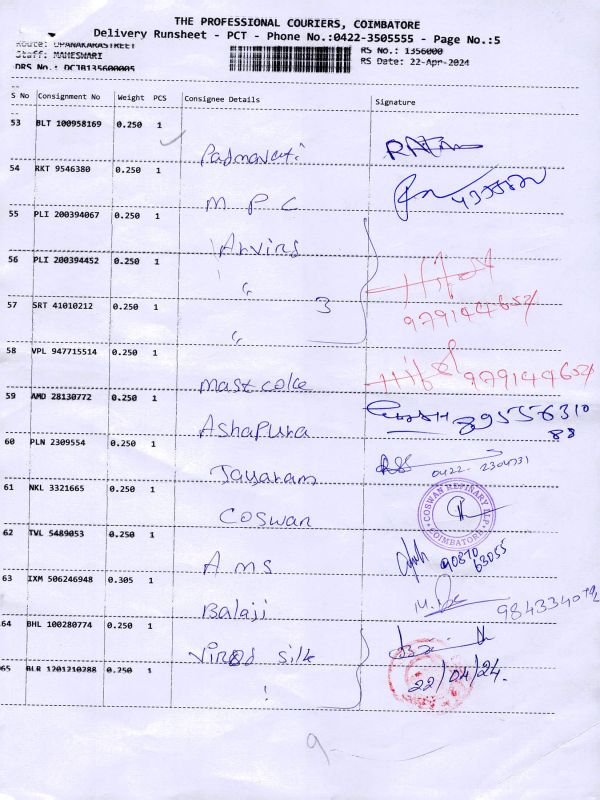 THE PROFESSIONAL COURIERS, COIMBATORE
Delivery Runsheet - PCT - Phone No.:0422-3505555 - Page No.:5
Route: OPANAKARASTREET
Staff: MAHESWARI
DRS No.: DCJB135600005
RS No.: 1356000
RS Date: 22-Apr-2024
S No Consignment No Weight PCS Consignee Details Signature
53 BLT 100958169 0.250 1 Padmavati
54 RKT 9546380 0.250 1 M P C
55 PLI 200394067 0.250 1 Arvind
56 PLI 200394452 0.250 1 "
57 SRT 41010212 0.250 1 " 3
9791449652
58 VPL 947715514 0.250 1 Mast colle 9791449652
59 AMD 28130772 0.250 1 Ashapura 895576310
88
60 PLN 2309554 0.250 1 Jayaram 0422-2304731
61 NKL 3321665 0.250 1 Coswan
COSWAN REFINARY LLP
COIMBATORE
62 TVL 5489053 0.250 1 A M S 90870
63055
63 IXM 506246948 0.305 1 Balaji 9843340792
64 BHL 100280774 0.250 1 silk
65 BLR 1201210288 0.250 1 "
22/04/24.
9